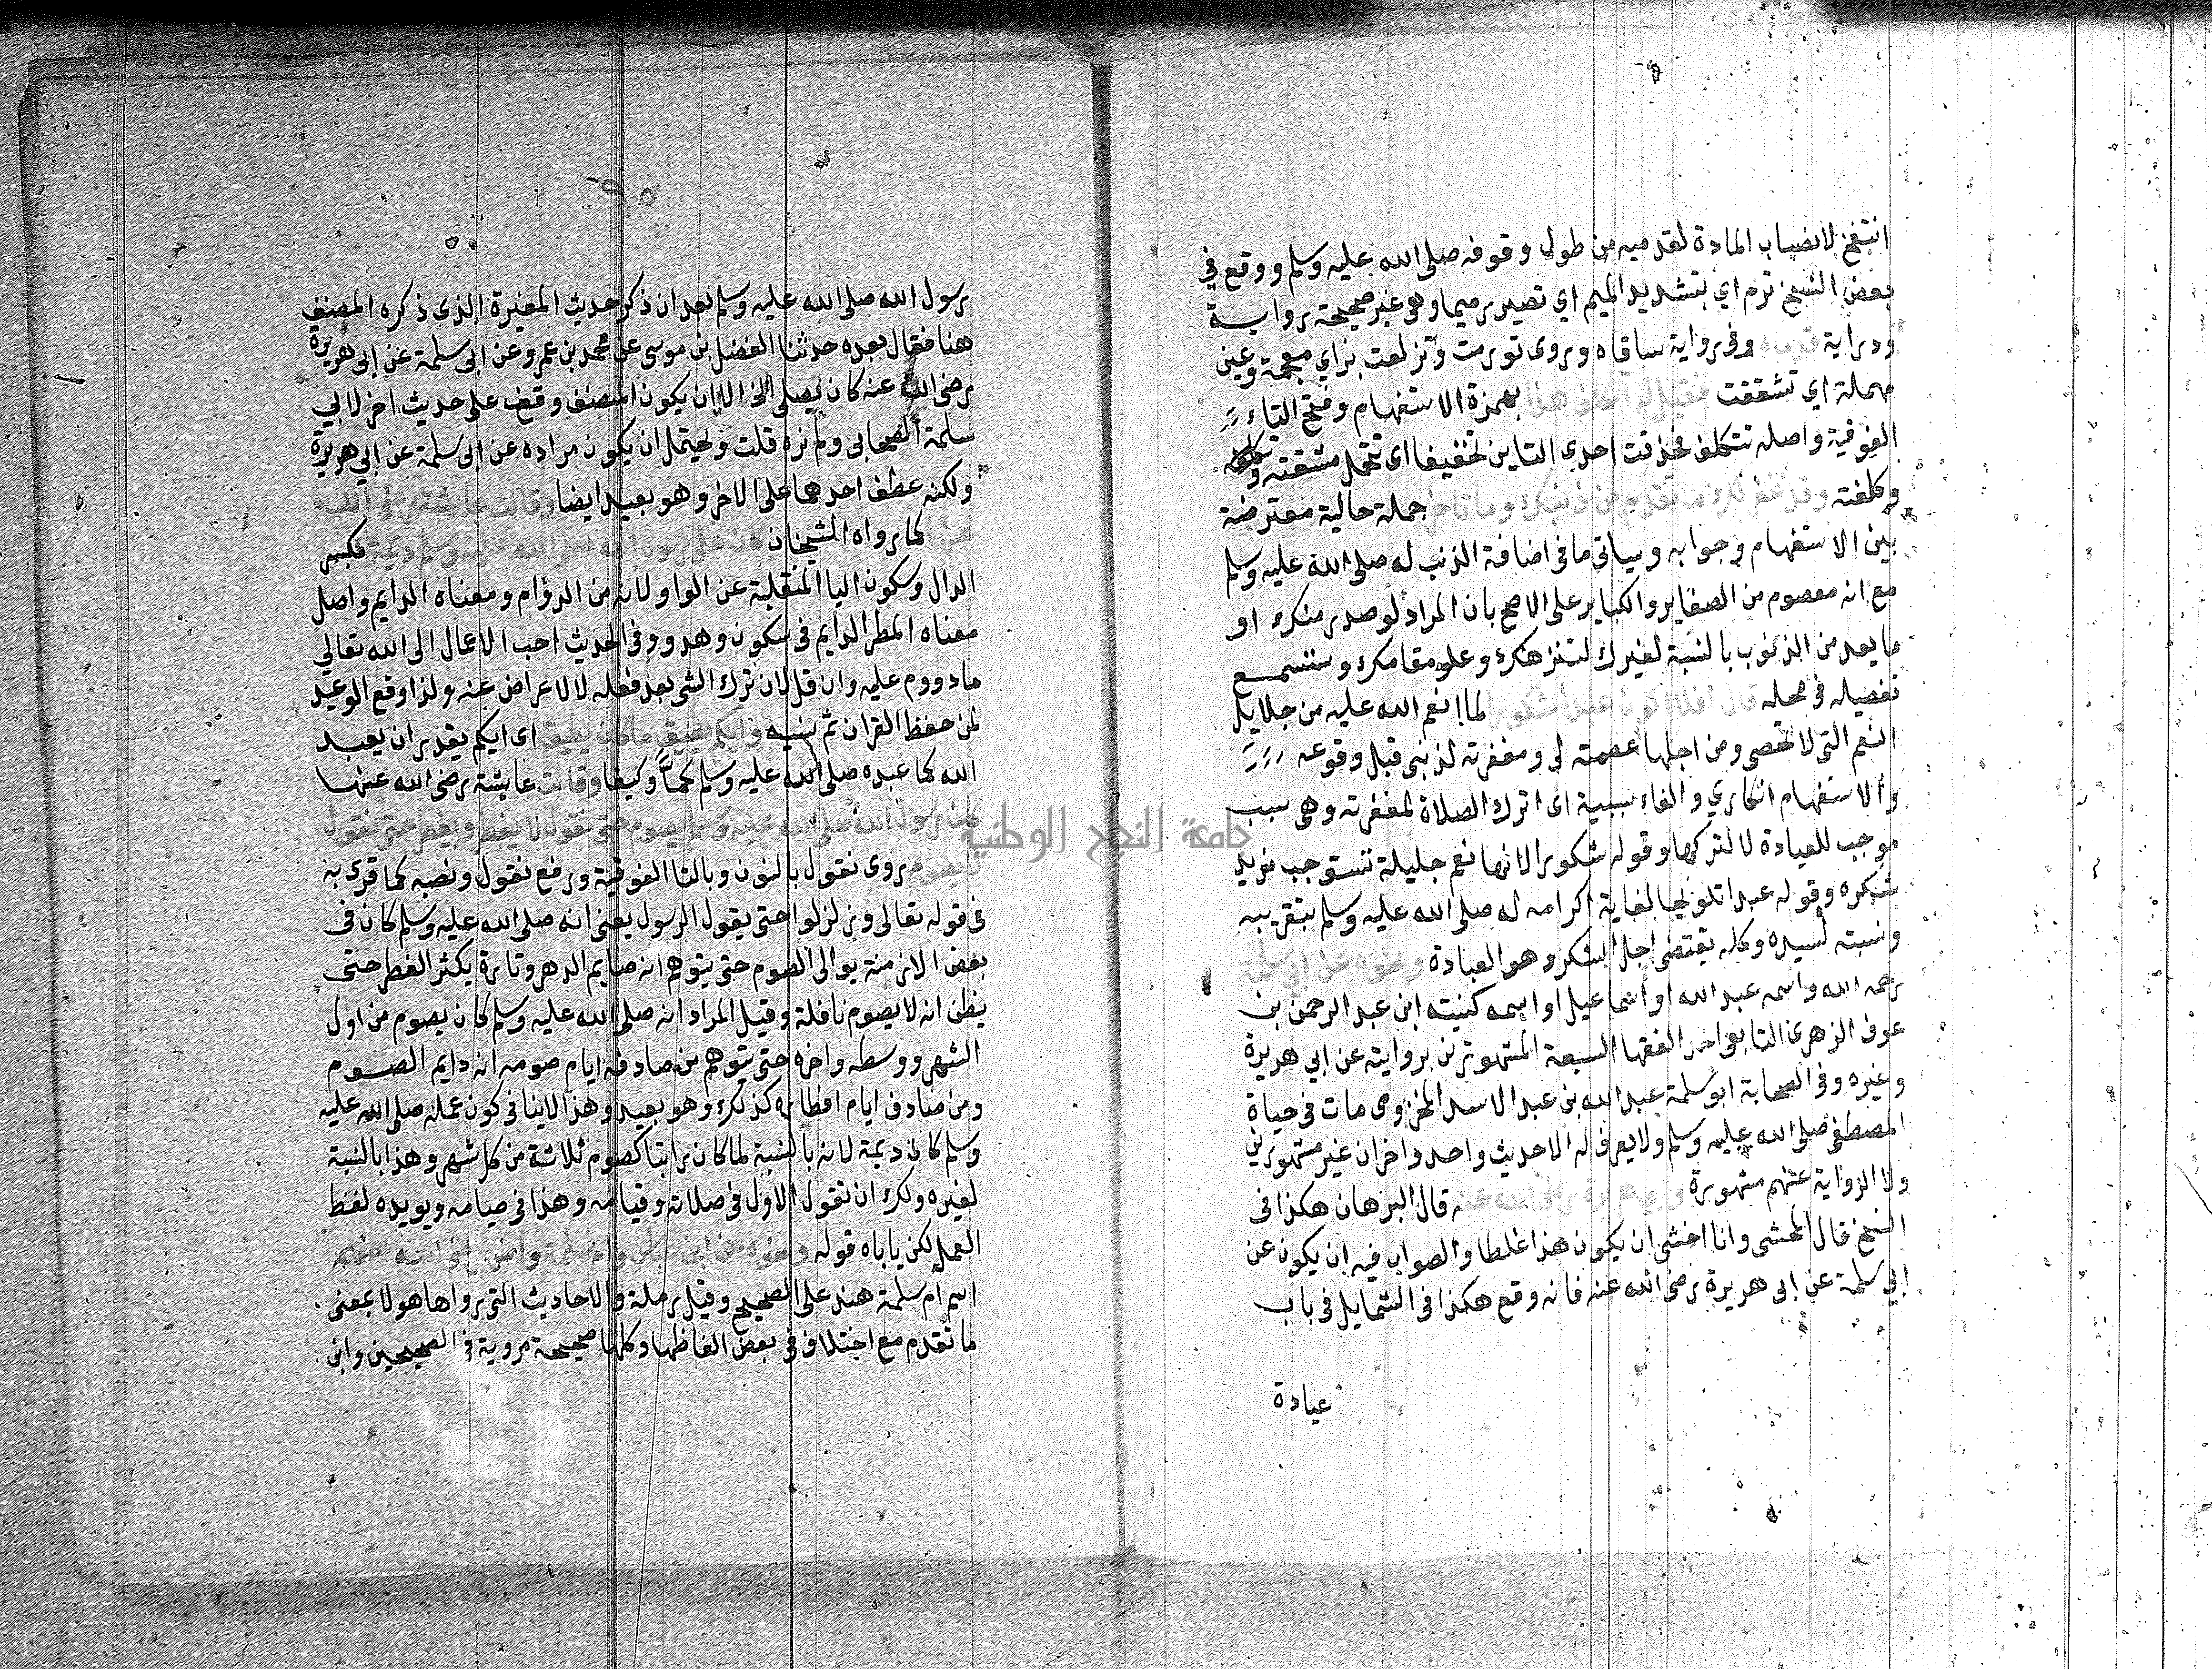 انتفخ لانصباب المادة لقدميه من طول وقوفه صلى الله عليه وسلم ووقع في
بعض النسخ ترم اي بتشديد الميم اي تصير رميما وهو غير صحيحة رواية
ودراية قدماه وفي رواية ساقاه ويروى تورمت وتزلعت بزاي معجمة وعين
مهملة اي تشققت فقيل له اتكلف هذا بهمزة الاستفهام وفتح التاء
الفوقية واصله تتكلف فحذفت احدى التاين تخفيفا اى تتحمل مشقته
وكلفته وقد غفر لك ما تقدم من ذنبك وما تاخر جملة حالية معترضة
بين الاستفهام وجوابه وسياتي ما في اضافة الذنب له صلى الله عليه وسلم
مع انه معصوم من الصغاير والكباير على الاصح بان المراد لو صدر منك او
ما يعد من الذنوب بالنسبة لغيرك لتنزهك وعلو مقامك وستسمع
تفصيله في محله قال افلا اكون عبدا شكورا لما انعم الله عليه من جلايل
النعم التي لا تحصى ومن اجلها عصمته لى ومغفرته لذنبى قبل وقوعه
والاستفهام انكاري والفاء سببية اى اترك الصلاة لمغفرته وهى سبب
موجب للعبادة لا لتركها وقوله شكورا لانها نعم جليلة تستوجب مزيد
شكره وقوله عبدا تلويحا لغاية اكرامه له صلى الله عليه وسلم بتقريبه
ونسبته لسيده وكله يقتضى اجل الشكر وهو العبادة ونحوه عن ابي سلمة
رحمه الله واسمه عبد الله او اسماعيل او اسمه كنيته ابن عبد الرحمن بن
عوف الزهرى التابعى احد الفقها السبعة المشهورين بروايته عن ابي هريرة
وغيره وفي الصحابة ابو سلمة عبد الله بن عبد الاسد المخزومى مات في حياة
المصطفى صلى الله عليه وسلم ولا يعرف له الا حديث واحد واخران غير مشهورين
ولا الرواية عنهم مشهورة وابي هريرة رضى الله عنه قال البرهان هكذا في
النسخ قال المحشى وانا اخشى ان يكون هذا غلطا والصواب فيه ان يكون عن
ابي سلمة عن ابى هريرة رضى الله عنه فانه وقع هكذا في الشمايل في باب
عبادة
رسول الله صلى الله عليه وسلم بعد ان ذكر حديث المغيرة الذى ذكره المصنف
هنا فقال بعده حدثنا الفضل بن موسى عن محمد بن عمرو عن ابى سلمة عن ابى هريرة
رضى الله عنه كان يصلى الخ الا ان يكون المصنف وقف على حديث اخر لابي
سلمة الصحابى ولم نره قلت ويحتمل ان يكون مراده عن ابى سلمة عن ابي هريرة
ولكنه عطف احدهما على الاخر وهو بعيد ايضا وقالت عايشة رضى الله
عنها كما رواه الشيخان كان عمل رسول الله صلى الله عليه وسلم ديمة بكسر
الدال وسكون اليا المنقلبة عن الواو لانه من الدوام ومعناه الدايم واصل
معناه المطر الدايم في سكون وهدو وفي الحديث احب الاعمال الى الله تعالي
ما دووم عليه وان قل لان ترك الشى بعد فعله لا لاعراض عنه ولذا وقع الوعيد
لمن حفظ القران ثم نسيه وايكم يطيق ما كان يطيق اى ايكم يقدر ان يعبد
الله كما عبده صلى الله عليه وسلم كما وكيفا وقالت عايشة رضى الله عنها
كان رسول الله صلى الله عليه وسلم يصوم حتى نقول لا يفطر ويفطر حتى نقول
لا يصوم روى نقول بالنون وبالتا الفوقية ورفع نقول ونصبه كما قرى به
في قوله تعالى وزلزلوا حتى يقول الرسول يعنى انه صلى الله عليه وسلم كان في
بعض الازمنة يوالى الصوم حتى يتوهم انه صايم الدهر وتارة يكثر الفطر حتى
يظن انه لا يصوم نافلة وقيل المراد انه صلى الله عليه وسلم كان يصوم من اول
الشهر ووسطه واخره حتى يتوهم من صادفه ايام صومه انه دايم الصوم
ومن صادف ايام افطاره كذلك وهو بعيد وهذا لا ينافى كون عمله صلى الله عليه
وسلم كان ديمة لانه بالنسبة لما كان راتبا كصوم ثلاثة من كل شهر وهذا بالنسبة
لغيره ولك ان تقول الاول في صلاته وقيامه وهذا في صيامه ويويده لفظ
العمل لكن ياباه قوله ونحوه عن ابن عباس وام سلمة وانس رضى الله عنهم
اسم ام سلمة هند على الصحيح وقيل رملة والاحاديث التي رواها هولا بمعنى
ما تقدم مع اختلاف في بعض الفاظها وكلها صحيحة مروية في الصحيحين وابن
جامعة النجاح الوطنية